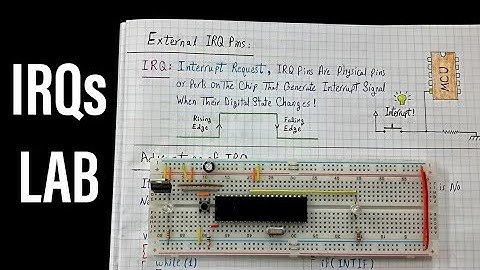 IRQs
LAB
External IRQ Pins:
IRQ: Interrupt Request, IRQ Pins Are Physical Pins
or Ports On The Chip That Generate Interrupt Signal
When Their Digital State Changes!
Rising
Edge
Falling
Edge
MCU
Interrupt!
is No
while(1)
if(INTIF)